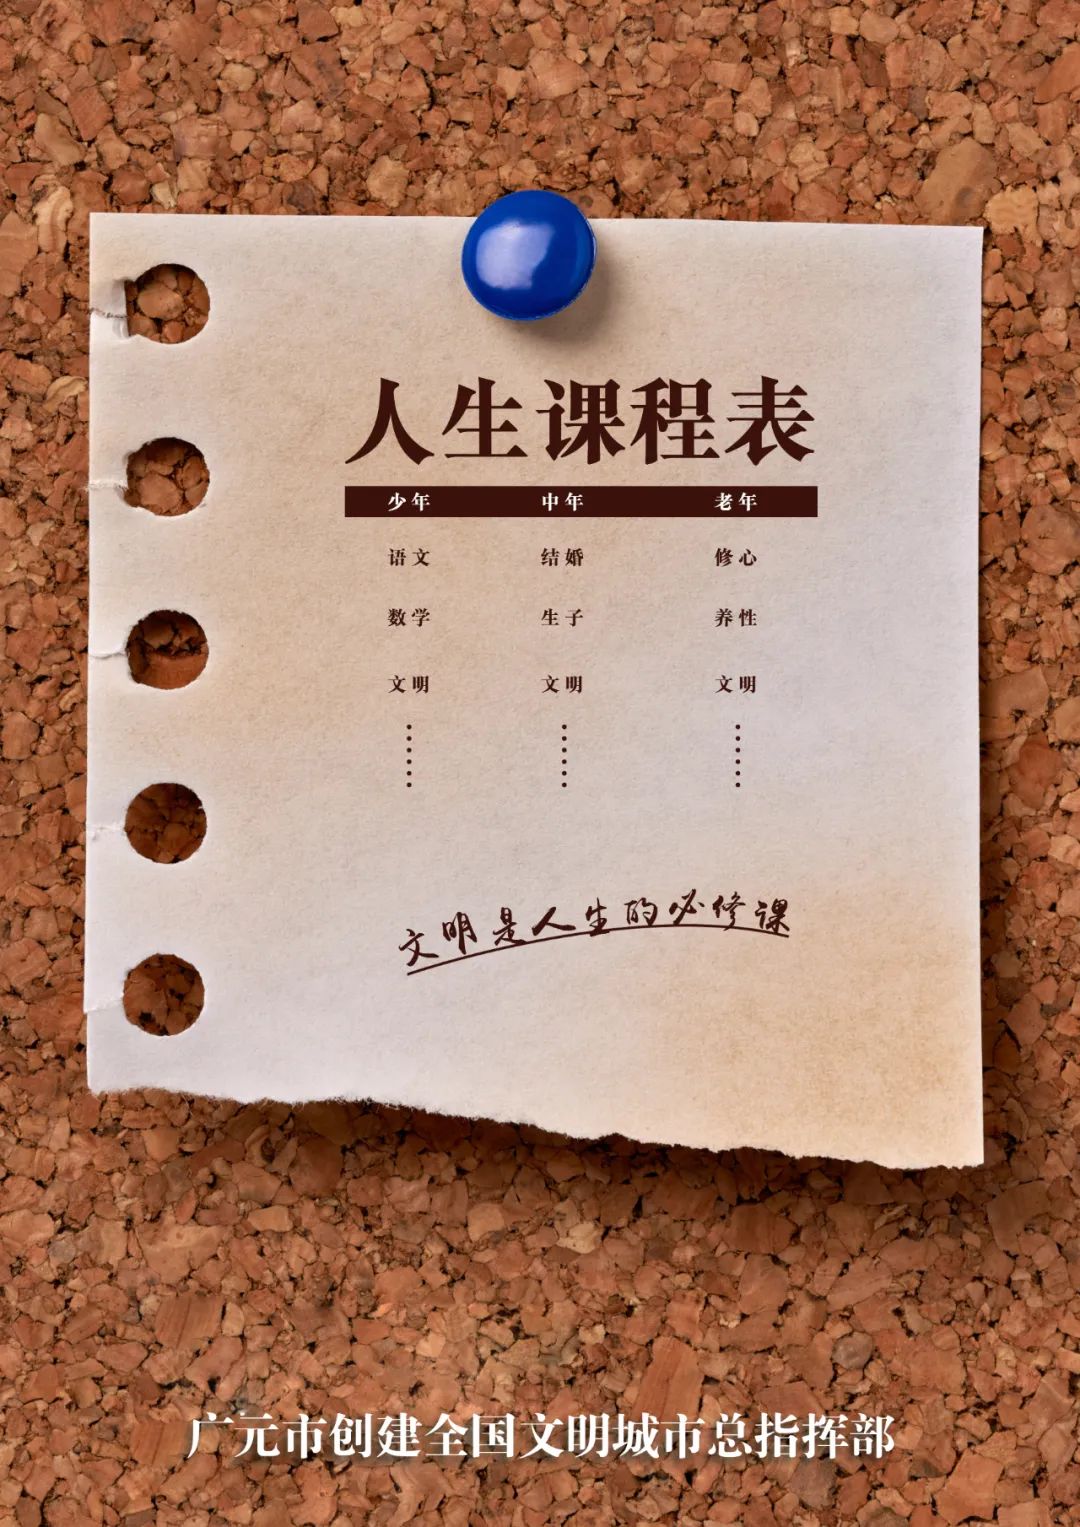 人生课程表
少年 中年 老年
语文 结婚 修心
数学 生子 养性
文明 文明 文明
⋮ ⋮ ⋮
文明是人生的必修课
广元市创建全国文明城市总指挥部